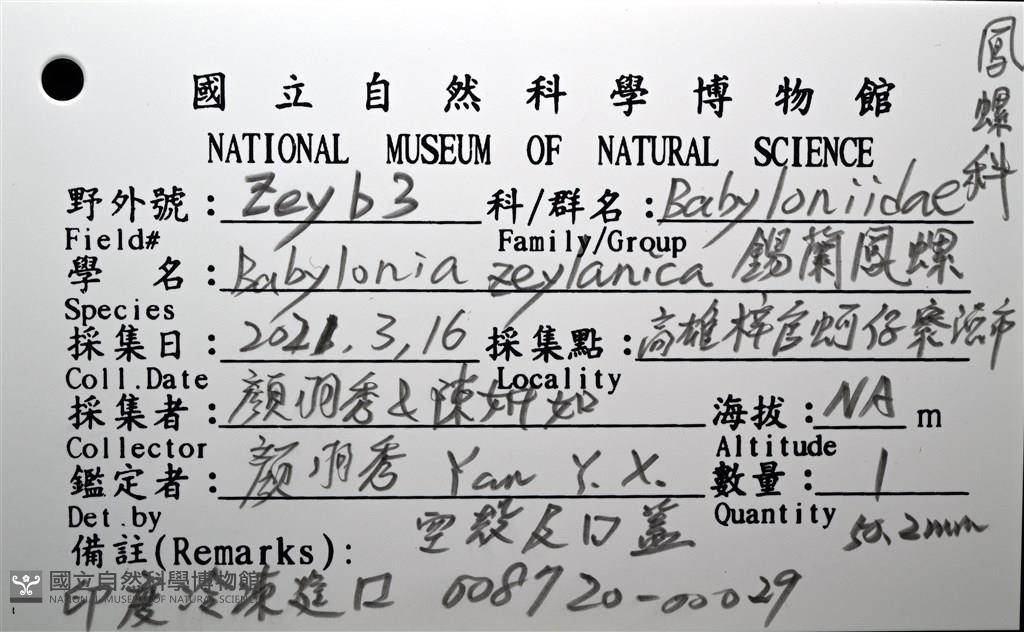 鳳螺科
國立自然科學博物館
NATIONAL MUSEUM OF NATURAL SCIENCE
野外號：Zeyb3 科/群名：Babyloniidae
Field# Family/Group
學名：Babylonia zeylanica 錫蘭鳳螺
Species
採集日：2021.3,16 採集點：高雄梓官蚵仔寮漁市
Coll.Date Locality
採集者：顏羽秀&陳妍如 海拔：NA m
Collector Altitude
鑑定者：顏羽秀 Yan Y.X. 數量：1
Det.by Quantity 50.2mm
備註(Remarks)： 空殼及口蓋
印度冷凍進口 008720-00029
國立自然科學博物館
NATIONAL MUSEUM OF NATURAL SCIENCE